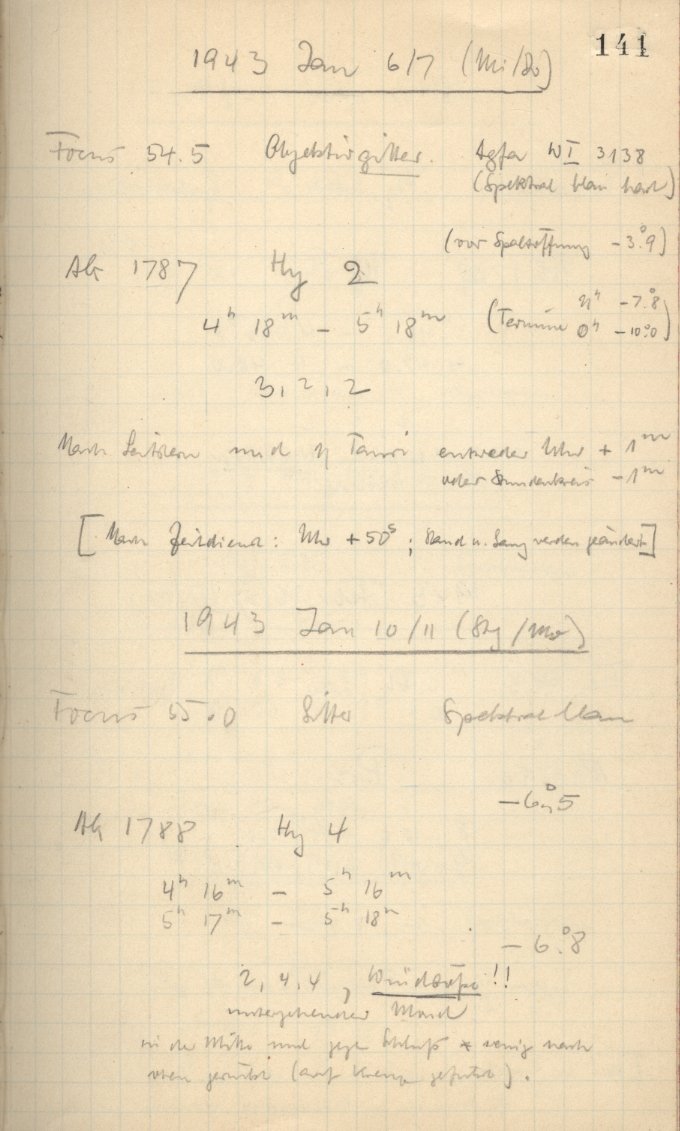 141
1943 Jan 6/7 (Mi/Do)
Focus 54.5 Objektivgitter. Agfa WI 3138
(Spektral blau hart)
(vor Spaltöffnung -3°.9)
Ak 1787 Hy 2
4h 18m - 5h 18m (Termine 21h -7°.8
0h -10°.0)
3, 2, 2
Nach Leitstern und η Tauri entweder Uhr + 1m
oder Stundenkreis -1m
[Nach Zeitdienst: Uhr +50s; Stand u. Gang werden geändert]
1943 Jan 10/11 (Stg/Mo)
Focus 55.0 Gitter Spektral blau
-6°.5
Ak 1788 Hy 4
4h 16m - 5h 16m
5h 17m - 5h 18m
-6°.8
2, 4, 4, Windstöße!!
untergehender Mond
in der Mitte und gegen Schluß * wenig nach
oben gerückt (auf Kreuz geführt).